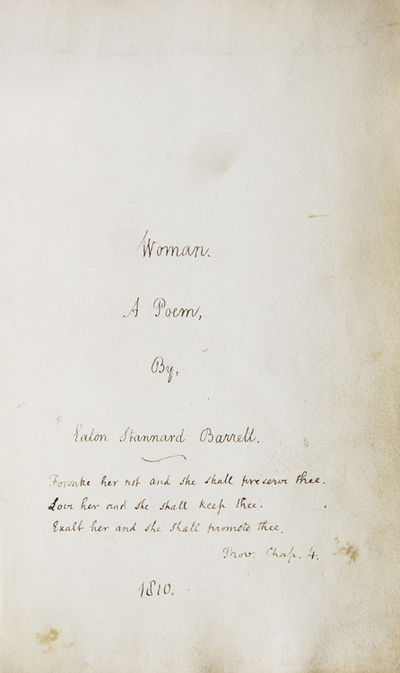 Woman.
A Poem,
By,
Eaton Stannard Barrett.
Forsake her not and she shall preserve thee.
Love her and she shall keep thee.
Exalt her and she shall promote thee.
Prov. Chap. 4.
1810.